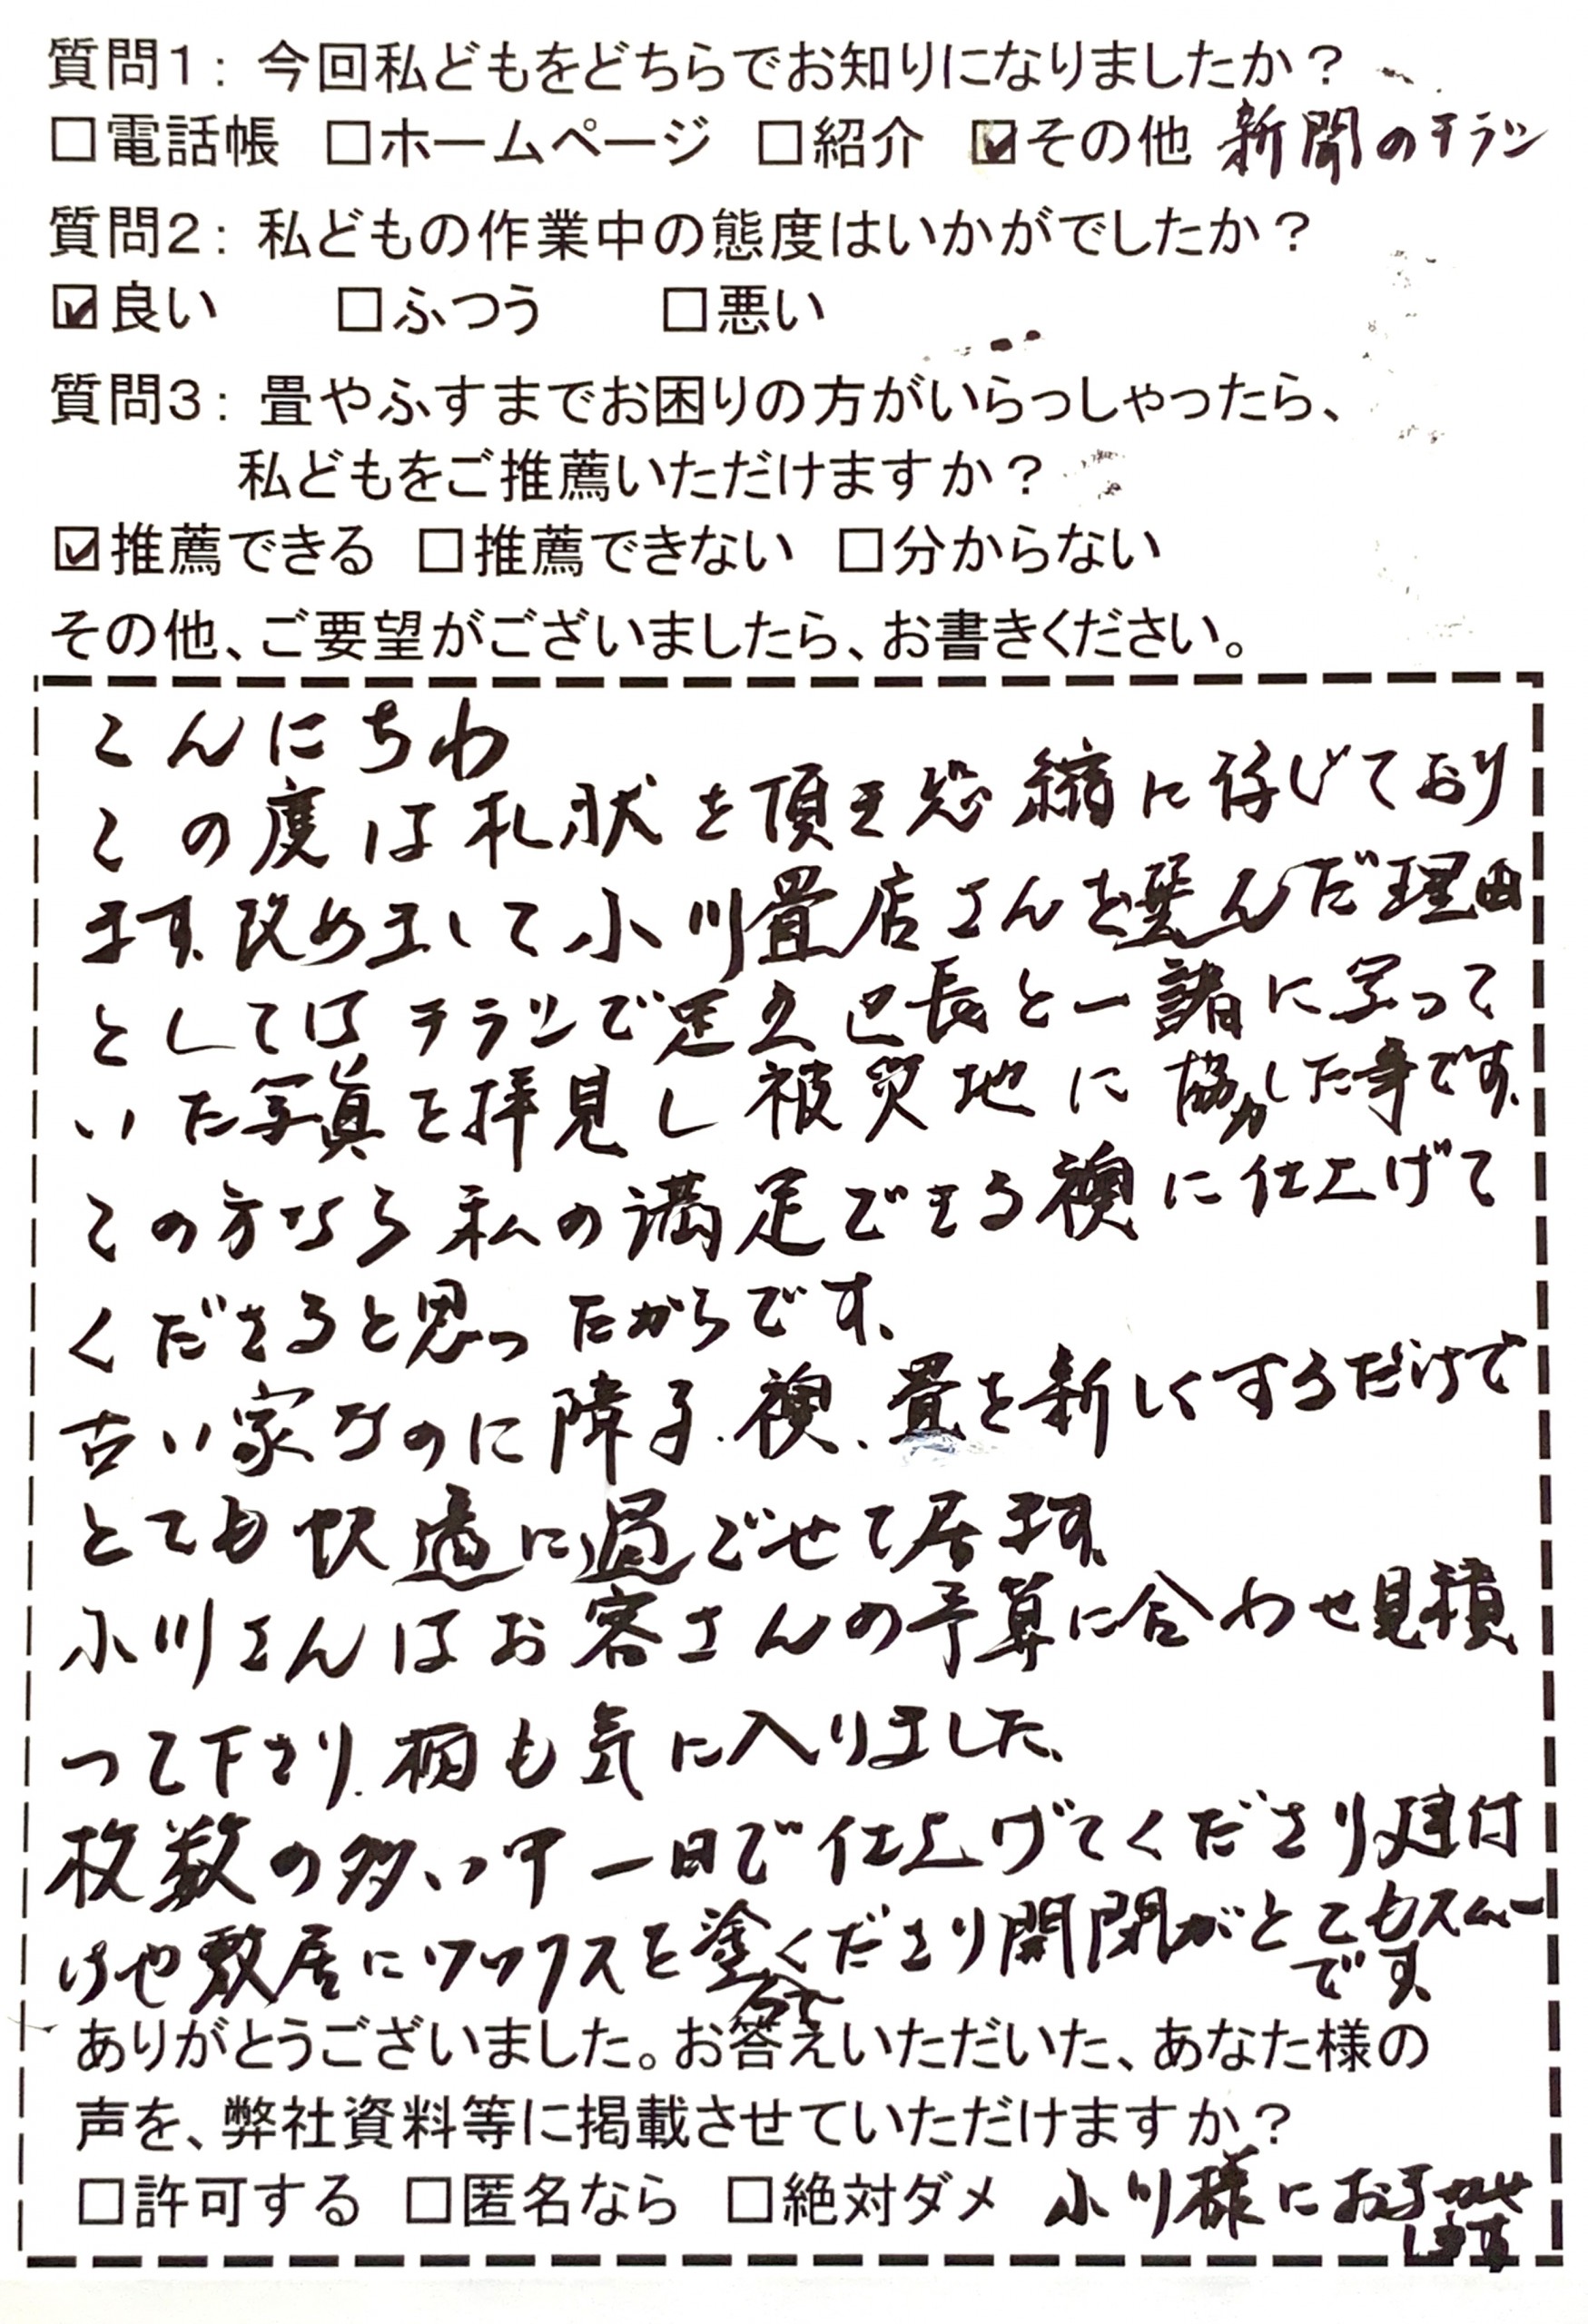 質問1: 今回私どもをどちらでお知りになりましたか?
□電話帳 □ホームページ □紹介 ☑その他 新聞のチラシ
質問2: 私どもの作業中の態度はいかがでしたか?
☑良い □ふつう □悪い
質問3: 畳やふすまでお困りの方がいらっしゃったら、
私どもをご推薦いただけますか?
☑推薦できる □推薦できない □分からない
その他、ご要望がございましたら、お書きください。
こんにちわ
この度は礼状を頂き恐縮に存じており
ます、改めまして小川畳店さんを選んだ理由
としては チラシで足立区長と一諸に写って
いた写真を拝見し被災地に協力した事です、
この方なら私の満足できる襖に仕上げて
くださると思ったからです、
古い家なのに障子、襖、畳を新しくするだけで
とても快適に過ごせて居ます、
小川さんはお客さんの予算に合わせ見積
って下さり、柄も気に入りました、
枚数の多い中一日で仕上げてくださり建付
けや敷居にワックスを塗ってくださり開閉がとてもスムー
です、
ありがとうございました。お答えいただいた、あなた様の
声を、弊社資料等に掲載させていただけますか?
□許可する □匿名なら □絶対ダメ 小川様におまかせ
します